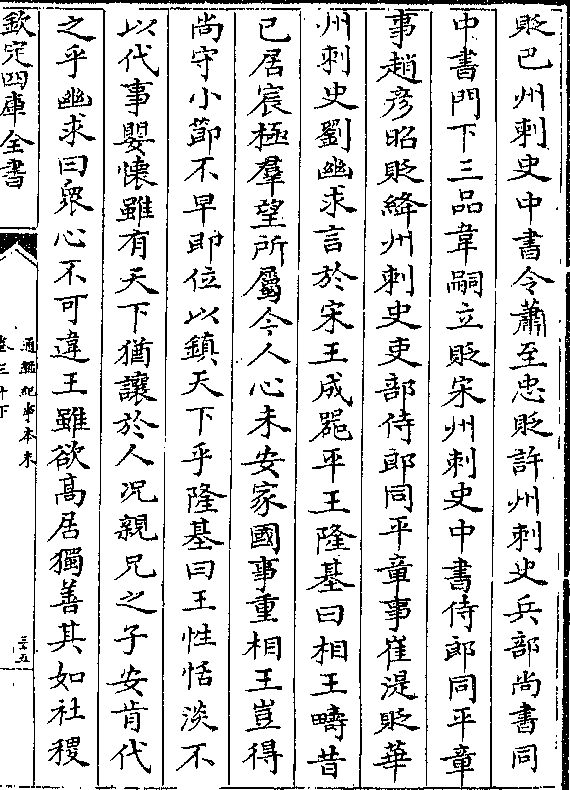 貶巴州刺史中書令蕭至忠貶許州刺史兵部尚書同
中書門下三品韋嗣立貶宋州刺史中書侍郎同平章
事趙彦昭貶絳州刺史吏部侍郎同平章事崔湜貶華
州刺史劉幽求言於宋王成器平王隆基曰相王疇昔
已居宸極羣望所屬今人心未安家國事重相王豈得
尚守小節不早即位以鎮天下乎隆基曰王性恬淡不
以代事嬰懷雖有天下猶讓於人况親兄之子安肯代
之乎幽求曰衆心不可違王雖欲高居獨善其如社稷
欽定四庫全書
通鑑紀事本末
卷三十下
三五